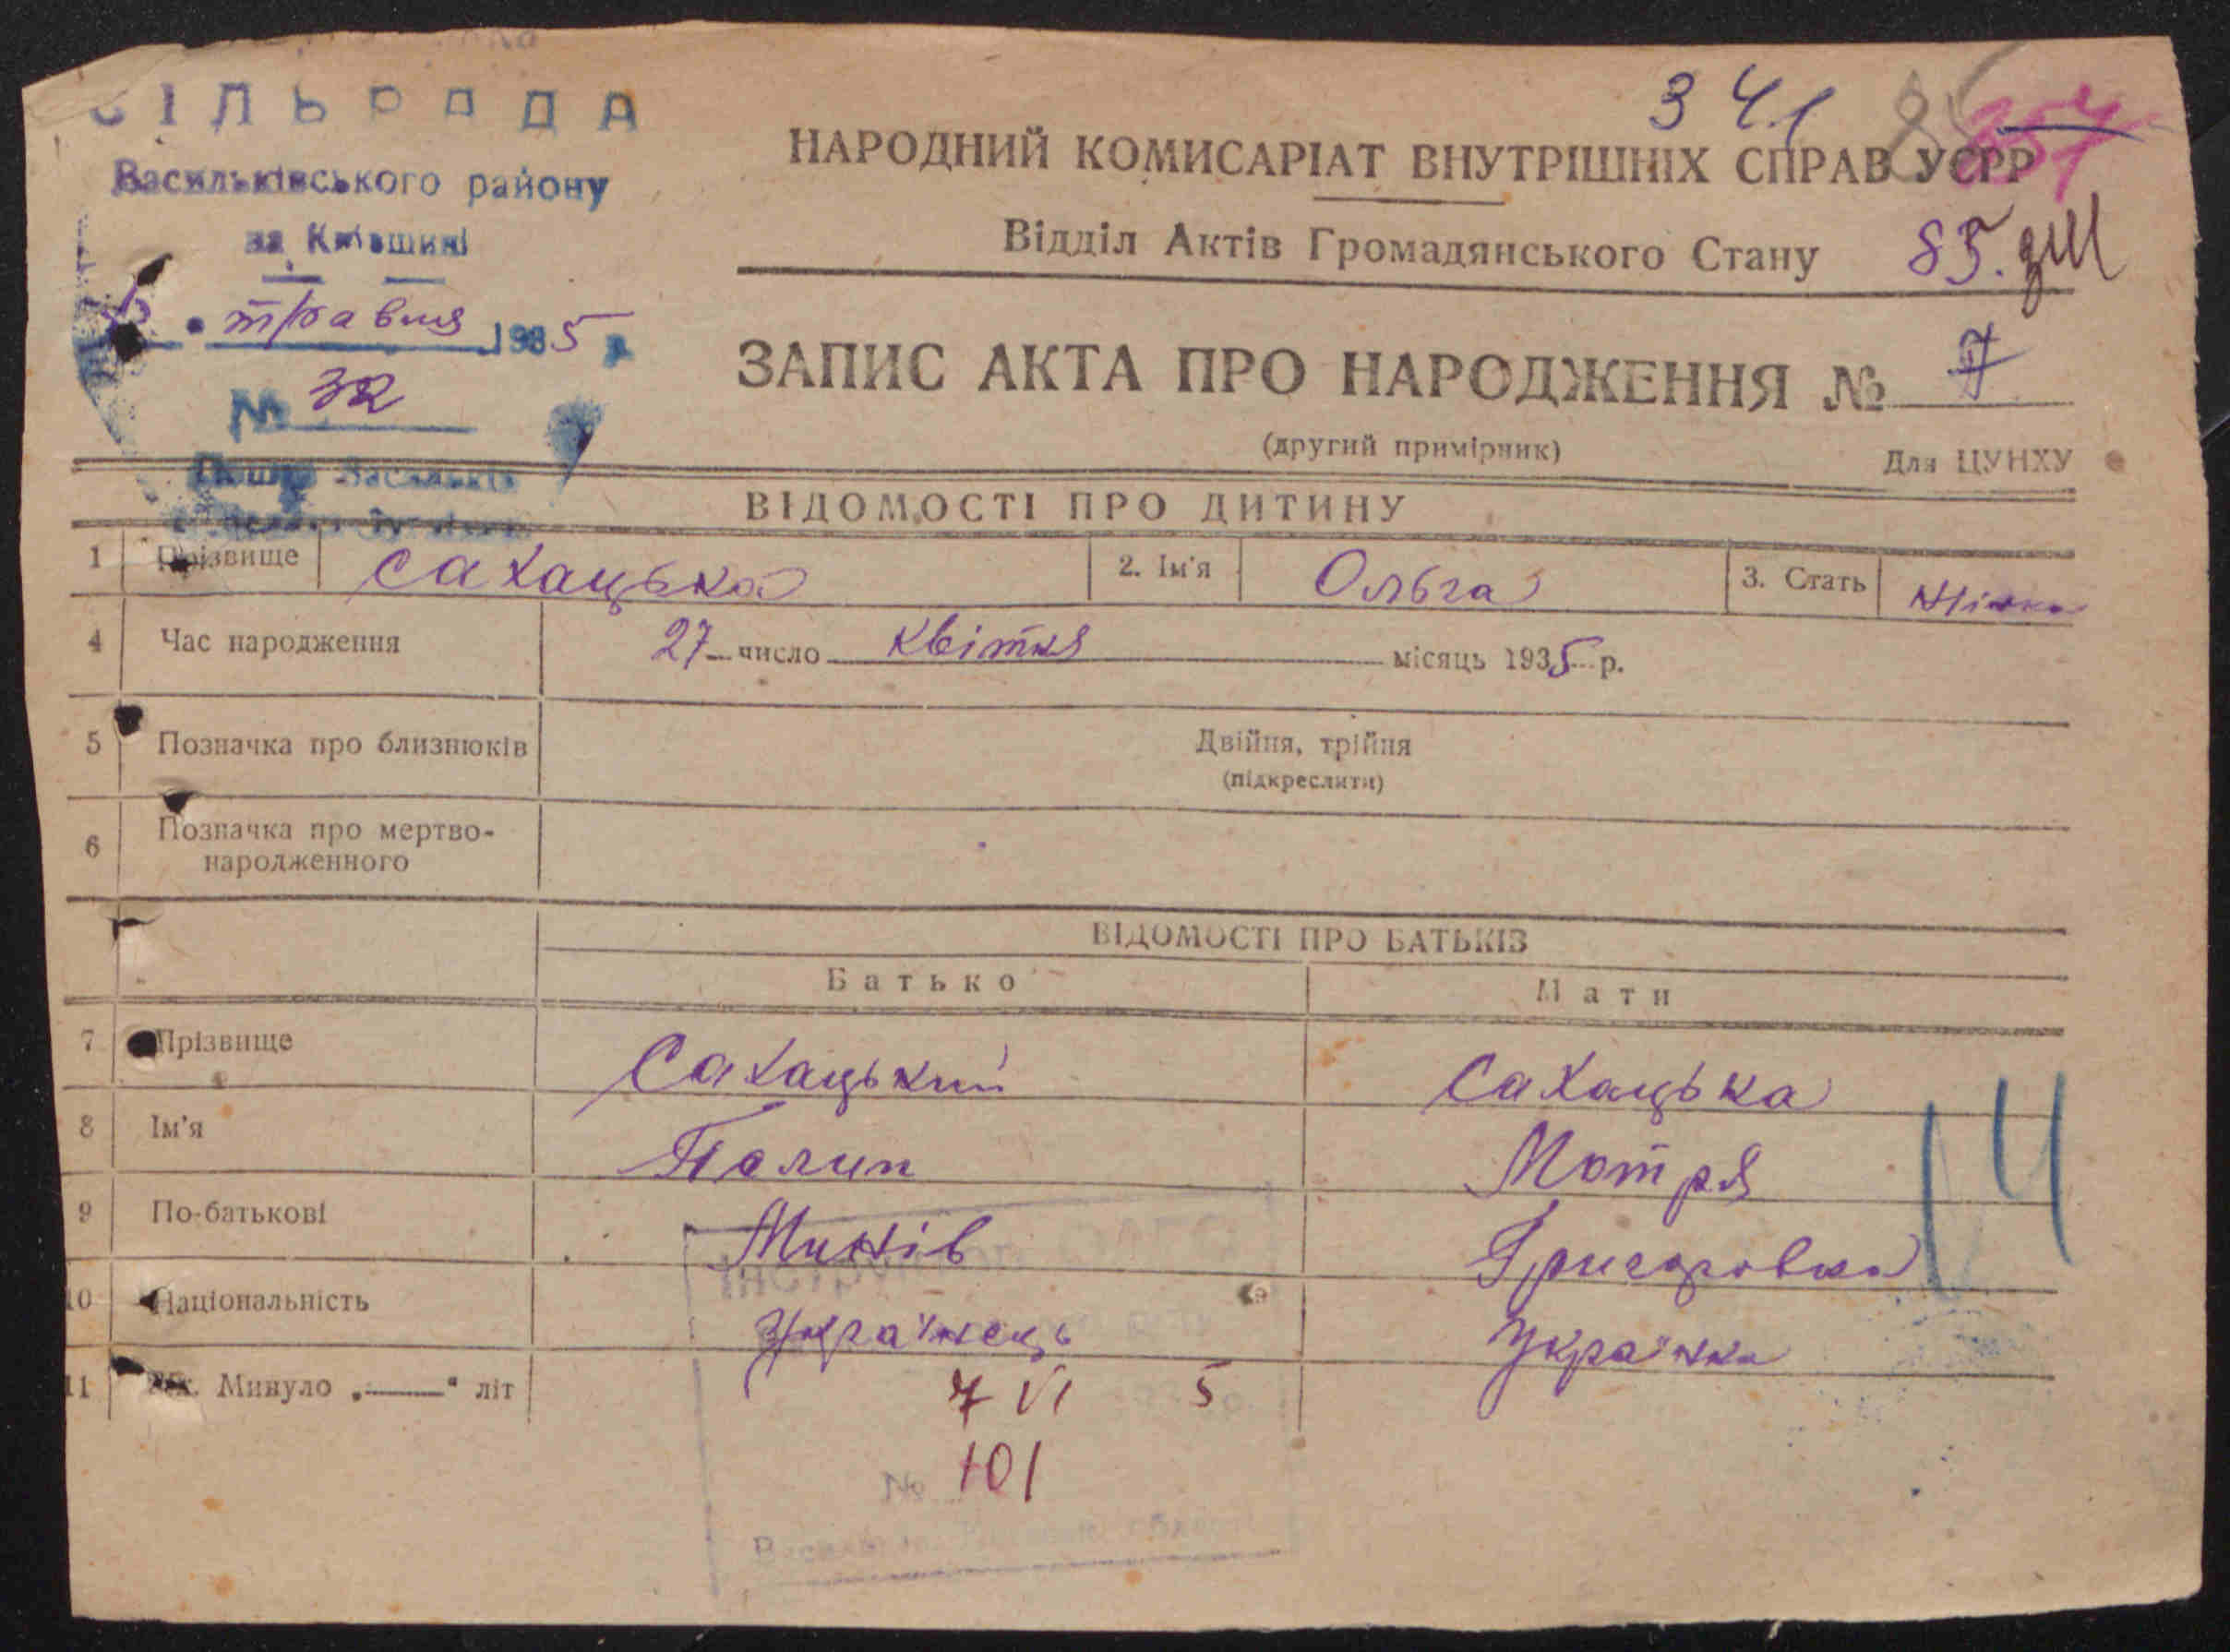 СІЛЬРАДА
Васильківського району
на Київщині
травня 1935 р
№ 32
Пошта Васильків
341
НАРОДНИЙ КОМИСАРІАТ ВНУТРІШНІХ СПРАВ УСРР
Відділ Актів Громадянського Стану 85.
ЗАПИС АКТА ПРО НАРОДЖЕННЯ № 7
(другий примірник)
Для ЦУНХУ
ВІДОМОСТІ ПРО ДИТИНУ
1 Прізвище Сахацька 2. Ім'я Ольга 3. Стать Жінка
4 Час народження 27 число Квітня місяць 1935 р.
5 Позначка про близнюків Двійня, трійня
(підкреслити)
6 Позначка про мертво-
народженного
ВІДОМОСТІ ПРО БАТЬКІВ
Батько Мати
7 Прізвище Сахацький Сахацька
8 Ім'я Полип Мотря
9 По-батькові Минів Григоровна
10 Національність Українець Українка
11 Вік. Минуло „——" літ
14
7 VI 5
№ 101